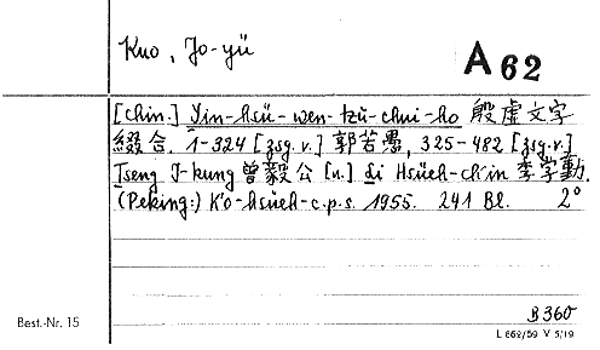 Kuo, Jo-yü
A 62
[chin.] Yin-hsü-wen-tzŭ-chui-ho 殷虛文字
綴合. 1-324 [zsg. v.] 郭若愚, 325-482 [zsg. v.]
Tseng I-kung 曾毅公 [u.] Li Hsüeh-ch'in 李学勤.
(Peking:) K'o-hsüeh-c.p.s. 1955. 241 Bl. 2°
B 360
Best.-Nr. 15
L 662/59 V 5/19